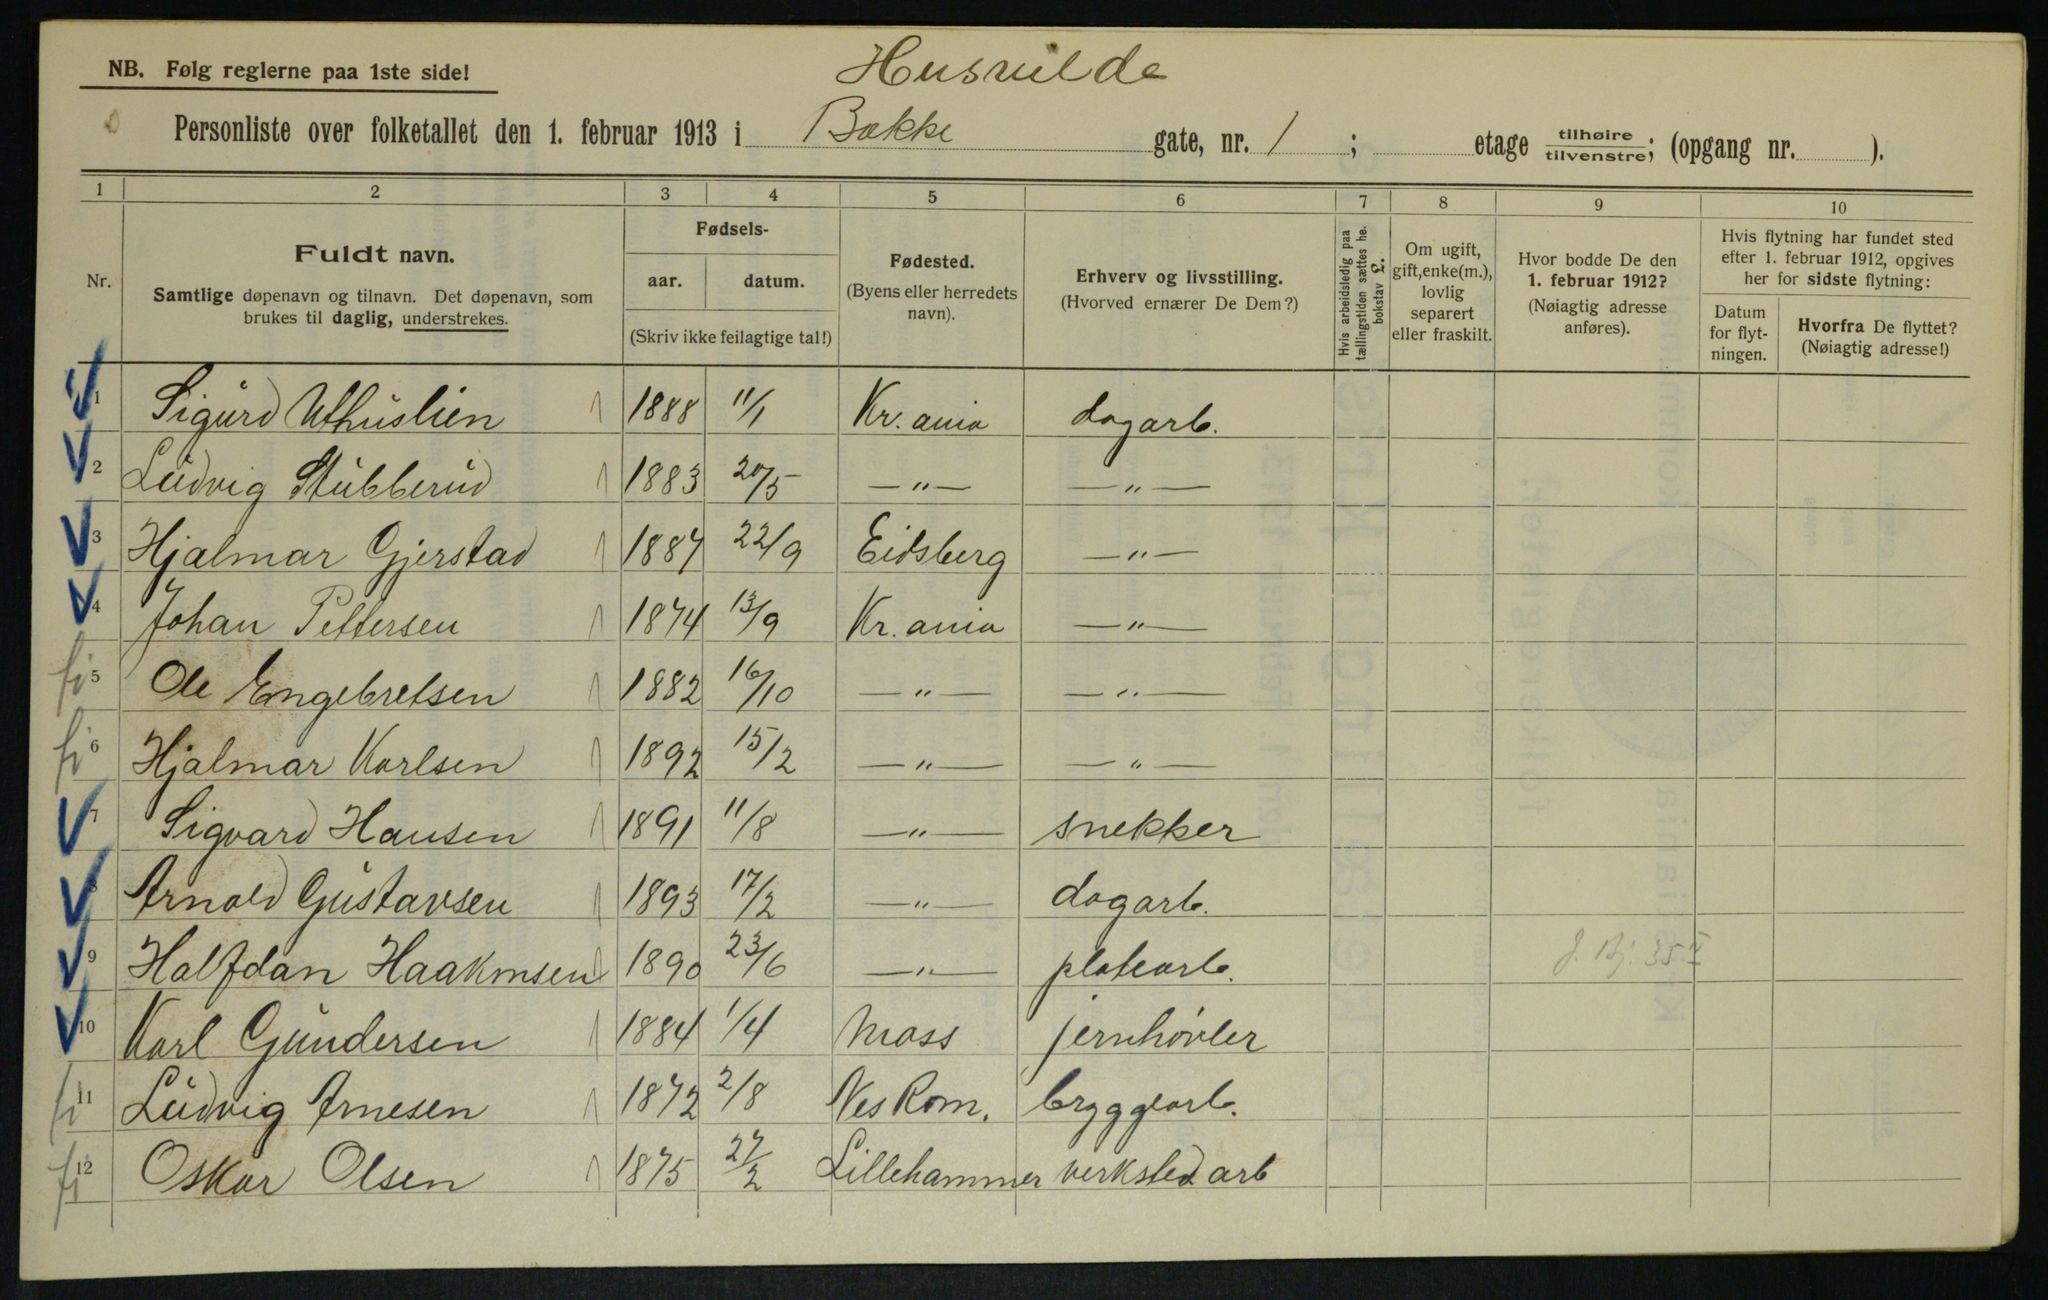 Husvilde
NB. Følg reglerne paa 1ste side!
Personliste over folketallet den 1. februar 1913 i Bakke gate, nr. 1 ; etage tilhøire/tilvenstre; (opgang nr. ).
1 2 3 4 5 6 7 8 9 10
Nr.
Fuldt navn.
Samtlige døpenavn og tilnavn. Det døpenavn, som
brukes til daglig, understrekes.
Fødsels-
aar. datum.
(Skriv ikke feilagtige tal!)
Fødested.
(Byens eller herredets
navn).
Erhverv og livsstilling.
(Hvorved ernærer De Dem?)
Hvis arbeidsledig paa
tællingstiden sættes he.
bokstav L.
Om ugift,
gift, enke(m.),
lovlig
separert
eller fraskilt.
Hvor bodde De den
1. februar 1912?
(Nøiagtig adresse
anføres).
Hvis flytning har fundet sted
efter 1. februar 1912, opgives
her for sidste flytning:
Datum
for flyt-
ningen.
Hvorfra De flyttet?
(Nøiagtig adresse!)
1 Sigurd Uthuslien 1888 11/1 Kr.ania dagarb.
2 Ludvig Stubberud 1883 20/5 —"— —"—
3 Hjalmar Gjerstad 1887 22/9 Eidsberg —"—
4 Johan Pettersen 1874 13/9 Kr.ania —"—
5 Ole Engebretsen 1882 16/10 —"— —"—
6 Hjalmar Karlsen 1892 15/2 —"— —"—
7 Sigvard Hansen 1891 11/8 —"— snekker
8 Arnold Gustavsen 1893 17/2 —"— dagarb.
9 Halfdan Haakonsen 1890 23/6 —"— platearb.
10 Karl Gundersen 1884 1/4 Moss jernhøvler
11 Ludvig Arnesen 1872 2/8 Nes Rom. bryggearb.
12 Oskar Olsen 1875 27/2 Lillehammer verksted arb